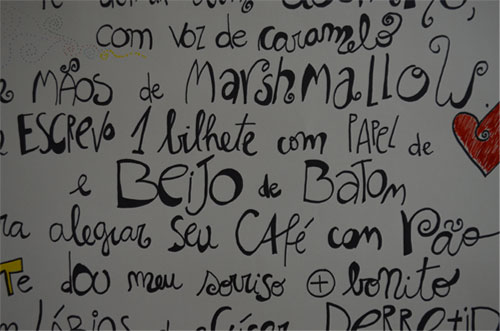 com voz de caramelo
MÃOS de MARSHMALLOW.
ESCREVO 1 bilhete com PAPEL de
e BEIJO de BATOM
ra alegrar seu CAFÉ com PÃO
Te dou meu sorriso + bonito
LÁBIOS DERRETID